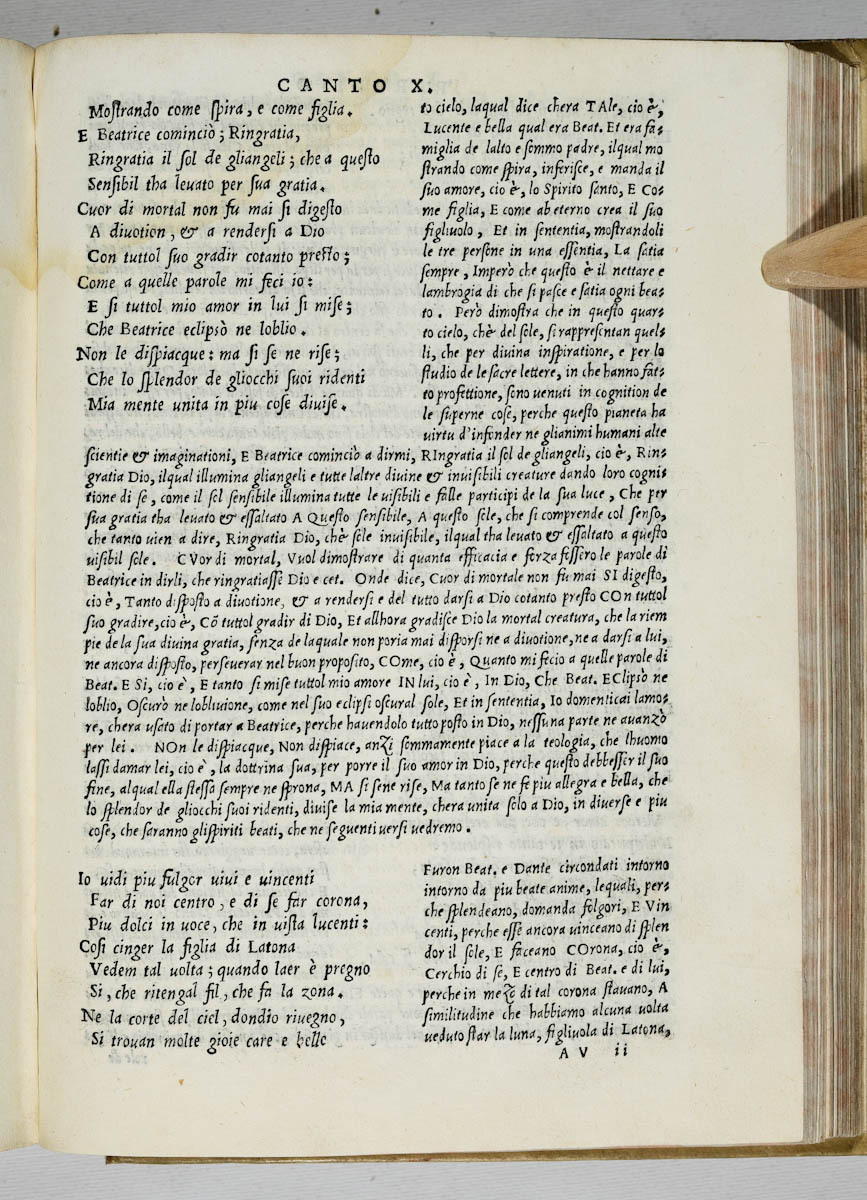 CANTO X.
Mostrando come spira, e come figlia.
E Beatrice cominciò; Ringratia,
Ringratia il sol de gliangeli; che a questo
Sensibil tha leuato per sua gratia.
Cuor di mortal non fu mai si digesto
A diuotion, & a rendersi a Dio
Con tuttol suo gradir cotanto presto;
Come a quelle parole mi feci io:
E si tuttol mio amor in lui si mise;
Che Beatrice eclipsò ne loblio.
Non le dispiacque: ma si se ne rise;
Che lo splendor de gliocchi suoi ridenti
Mia mente unita in piu cose diuise.
to cielo, laqual dice chera TAle, cio è,
Lucente e bella qual era Beat. Et era fa-
miglia de lalto e sommo padre, ilqual mo
strando come spira, inferisce, e manda il
suo amore, cio è, lo Spirito santo, E Co-
me figlia, E come ab eterno crea il suo
figliuolo, Et in sententia, mostrandoli
le tre persone in una essentia, La satia
sempre, Imperò che questo è il nettare e
lambrogia di che si pasce e satia ogni bea-
to. Però dimostra che in questo quar-
to cielo, chè del sole, si rappresentan quel-
li, che per diuina inspiratione, e per lo
studio de le sacre lettere, in che hanno fat-
to profettione, sono uenuti in cognition de
le superne cose, perche questo pianeta ha
uirtu d'infonder ne glianimi humani alte
scientie & imaginationi, E Beatrice cominciò a dirmi, RIngratia il sol de gliangeli, cio è, Rin-
gratia Dio, ilqual illumina gliangeli e tutte laltre diuine & inuisibili creature dando loro cogni-
tione di se, come il sol sensibile illumina tutte le uisibili e falle participi de la sua luce, Che per
sua gratia tha leuato & essaltato A Questo sensibile, A questo sole, che si comprende col senso,
che tanto uien a dire, Ringratia Dio, chè sole inuisibile, ilqual tha leuato & essaltato a questo
uisibil sole. CVor di mortal, Vuol dimostrare di quanta efficacia e forza fossero le parole di
Beatrice in dirli, che ringratiasse Dio e cet. Onde dice, Cuor di mortale non fu mai SI digesto,
cio è, Tanto disposto a diuotione, & a rendersi e del tutto darsi a Dio cotanto presto COn tuttol
suo gradire, cio è, Cõ tuttol gradir di Dio, Et allhora gradisce Dio la mortal creatura, che la riem
pie de la sua diuina gratia, senza de laquale non poria mai disporsi ne a diuotione, ne a darsi a lui,
ne ancora disposto, perseuerar nel buon proposito, COme, cio è, Quanto mi fecio a quelle parole di
Beat. E Si, cio è, E tanto si mise tuttol mio amore IN lui, cio è, In Dio, Che Beat. EClipsò ne
loblio, Oscurò ne lobliuione, come nel suo eclipsi oscural sole, Et in sententia, Io domenticai lamo-
re, chera usato di portar a Beatrice, perche hauendolo tutto posto in Dio, nessuna parte ne auanzò
per lei. NOn le dispiacque, Non dispiace, anzi sommamente piace a la teologia, che lhuomo
lassi damar lei, cio è, la dottrina sua, per porre il suo amor in Dio, perche questo debbesser il suo
fine, alqual ella stessa sempre ne sprona, MA si sene rise, Ma tanto se ne fe piu allegra e bella, che
lo splendor de gliocchi suoi ridenti, diuise la mia mente, chera unita solo a Dio, in diuerse e piu
cose, che saranno glispiriti beati, che ne seguenti uersi uedremo.
Io uidi piu fulgor uiui e uincenti
Far di noi centro, e di se far corona,
Piu dolci in uoce, che in uista lucenti:
Cosi cinger la figlia di Latona
Vedem tal uolta; quando laer è pregno
Si, che ritengal fil, che fa la zona.
Ne la corte del ciel, dondio riuegno,
Si trouan molte gioie care e belle
Furon Beat. e Dante circondati intorno
intorno da piu beate anime, lequali, per-
che splendeano, domanda folgori, E Vin
centi, perche esse ancora uinceano di splen
dor il sole, E faceano COrona, cio è,
Cerchio di se, E centro di Beat. e di lui,
perche in mezo di tal corona stauano, A
similitudine che habbiamo alcuna uolta
ueduto star la luna, figliuola di Latona,
A V ii